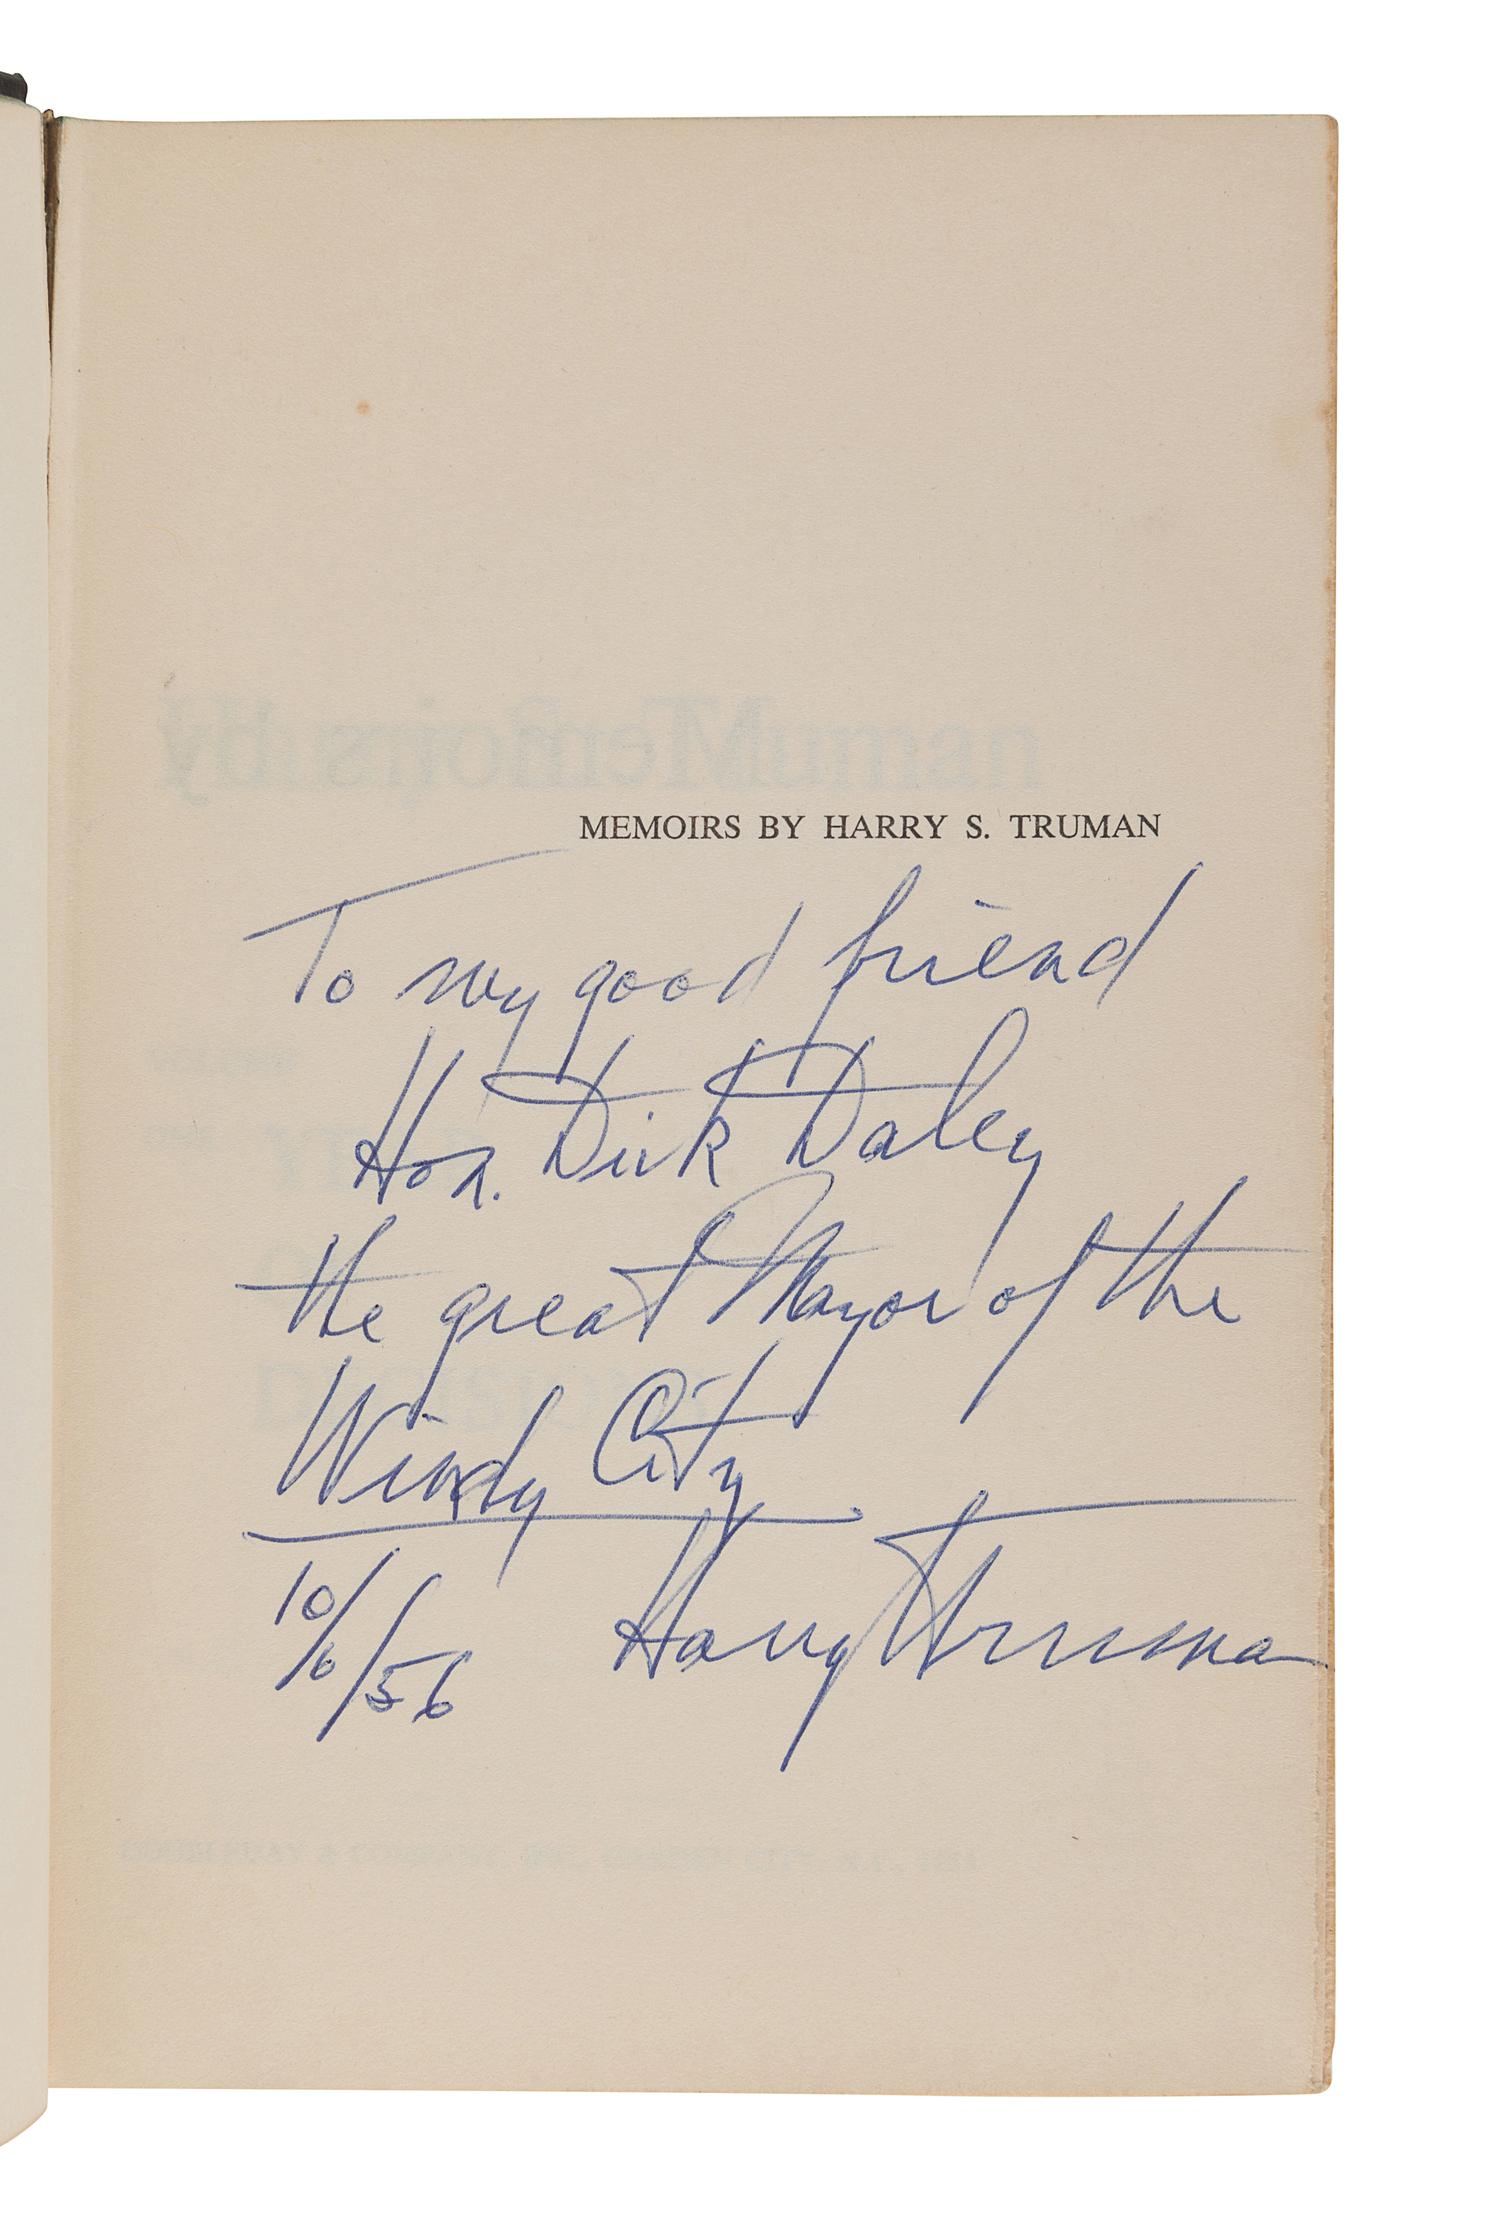 MEMOIRS BY HARRY S. TRUMAN
To my good friend
Hon. Dick Daley
the great Mayor of the
Windy City
10/6/56 Harry S Truman